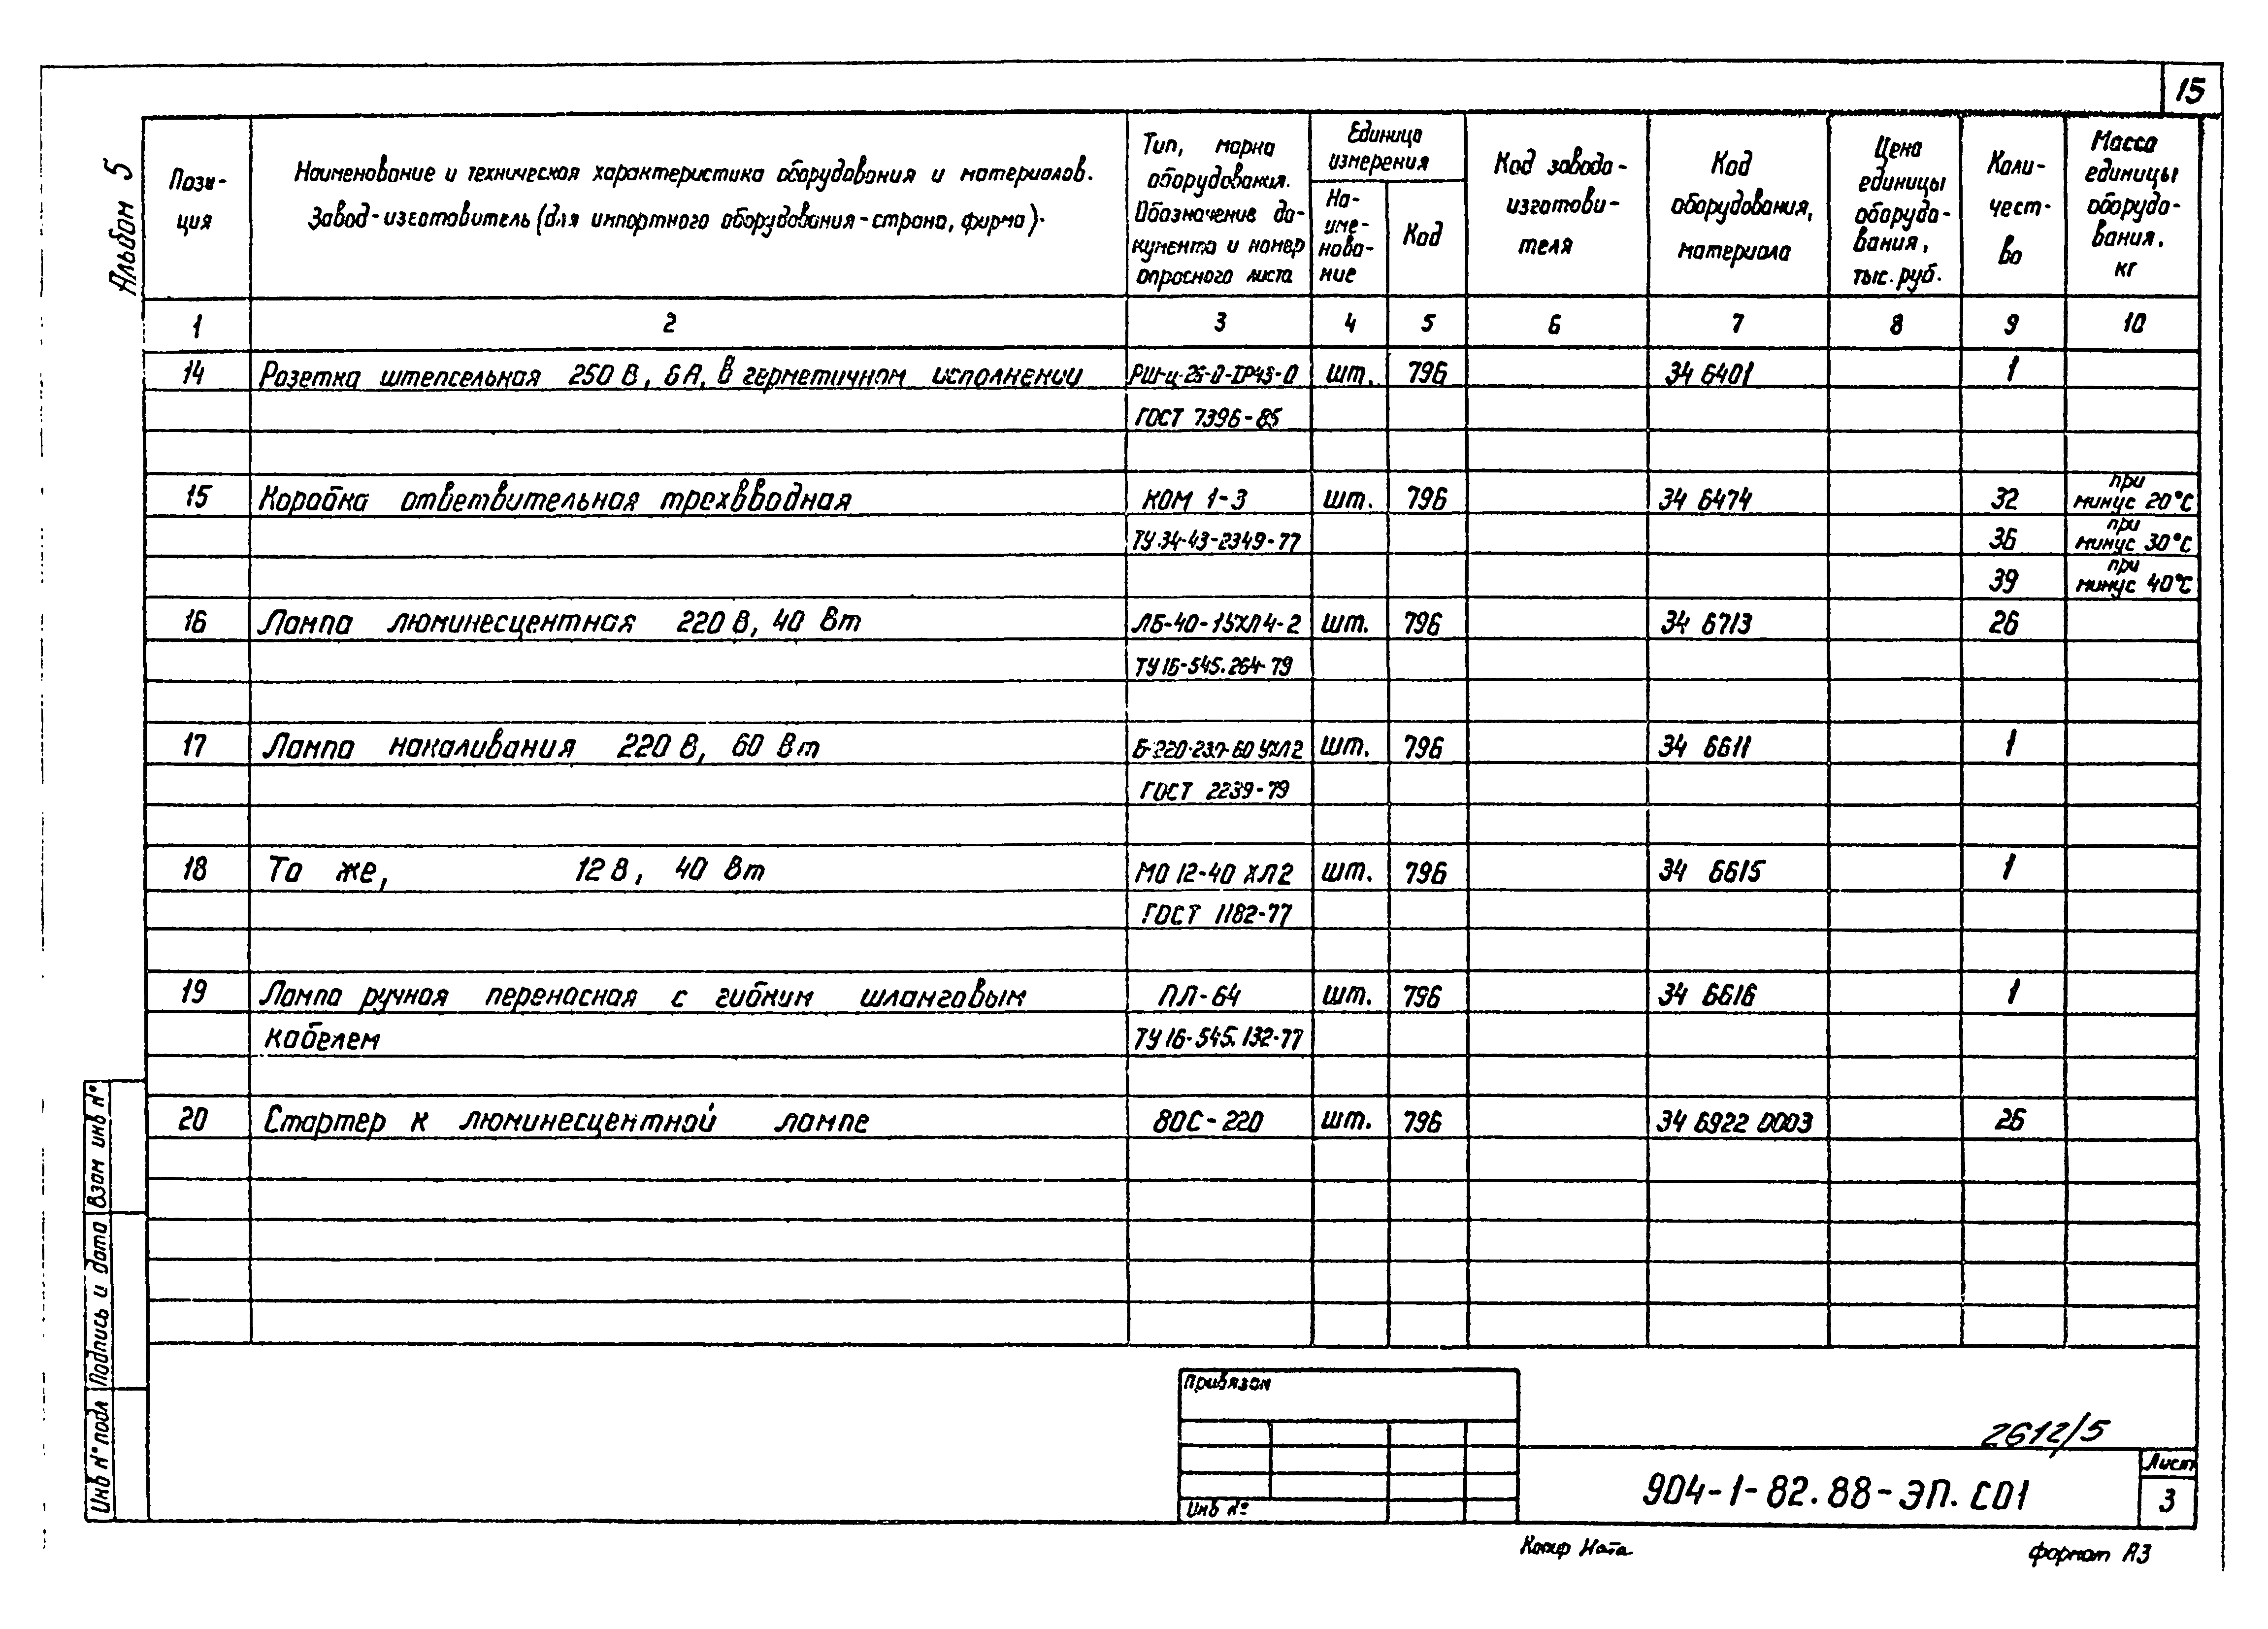 15
Альбом 5
Пози-
ция
Наименование и техническая характеристика оборудования и материалов.
Завод-изготовитель (для импортного оборудования-страна, фирма).
Тип, марка
оборудования.
Обозначение до-
кумента и номер
опросного листа
Единица
измерения
На-
име-
нова-
ние
Код
Код завода-
изготови-
теля
Код
оборудования,
материала
Цена
единицы
оборудо-
вания,
тыс. руб.
Коли-
чест-
во
Масса
единицы
оборудо-
вания,
кг
1 2 3 4 5 6 7 8 9 10
14 Розетка штепсельная 250 В, 6А, в герметичном исполнении РШ-ц-2б-0-IP43-0 шт. 796 34 6401 1
ГОСТ 7396-85
15 Коробка ответвительная трехвводная КОМ 1-3 шт. 796 34 6474 32 при минус 20°С
ТУ 34-43-2349-77 36 при минус 30°С
39 при минус 40°С
16 Лампа люминесцентная 220 В, 40 Вт ЛБ-40-1УХЛ4-2 шт. 796 34 6713 26
ТУ16-545.264-79
17 Лампа накаливания 220 В, 60 Вт Б-220-230-60 УХЛ2 шт. 796 34 6611 1
ГОСТ 2239-79
18 То же, 12 В, 40 Вт МО 12-40 ХЛ2 шт. 796 34 6615 1
ГОСТ 1182-77
19 Лампа ручная переносная с гибким шланговым ПЛ-64 шт. 796 34 6616 1
кабелем ТУ 16-545.132-77
20 Стартер к люминесцентной лампе 80С-220 шт. 796 34 6922 0003 26
Взам инв N°
Подпись и дата
Инв N° подл
Привязан
Инв N°
2612/5
904-1-82.88-ЭП.СО1
Лист
3
Копир Ната
формат А3